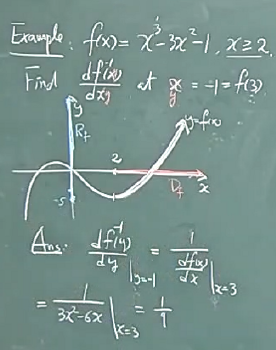 Example: f(x) = x³-3x²-1, x≥2.
Find df⁻¹(y)/dy at y = -1 = f(3).
y
R_f
y=f(x)
2
-5
D_f
x
Ans: df⁻¹(y)/dy |y=-1 = 1/(df(x)/dx) |x=3
= 1/(3x²-6x) |x=3 = 1/9